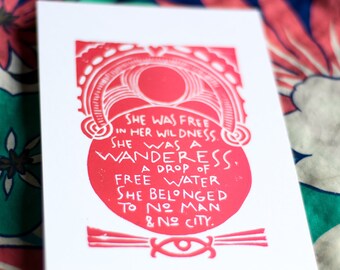 SHE WAS FREE
IN HER WILDNESS
SHE WAS A
WANDERESS.
A DROP OF
FREE WATER
SHE BELONGED
TO NO MAN
& NO CITY.